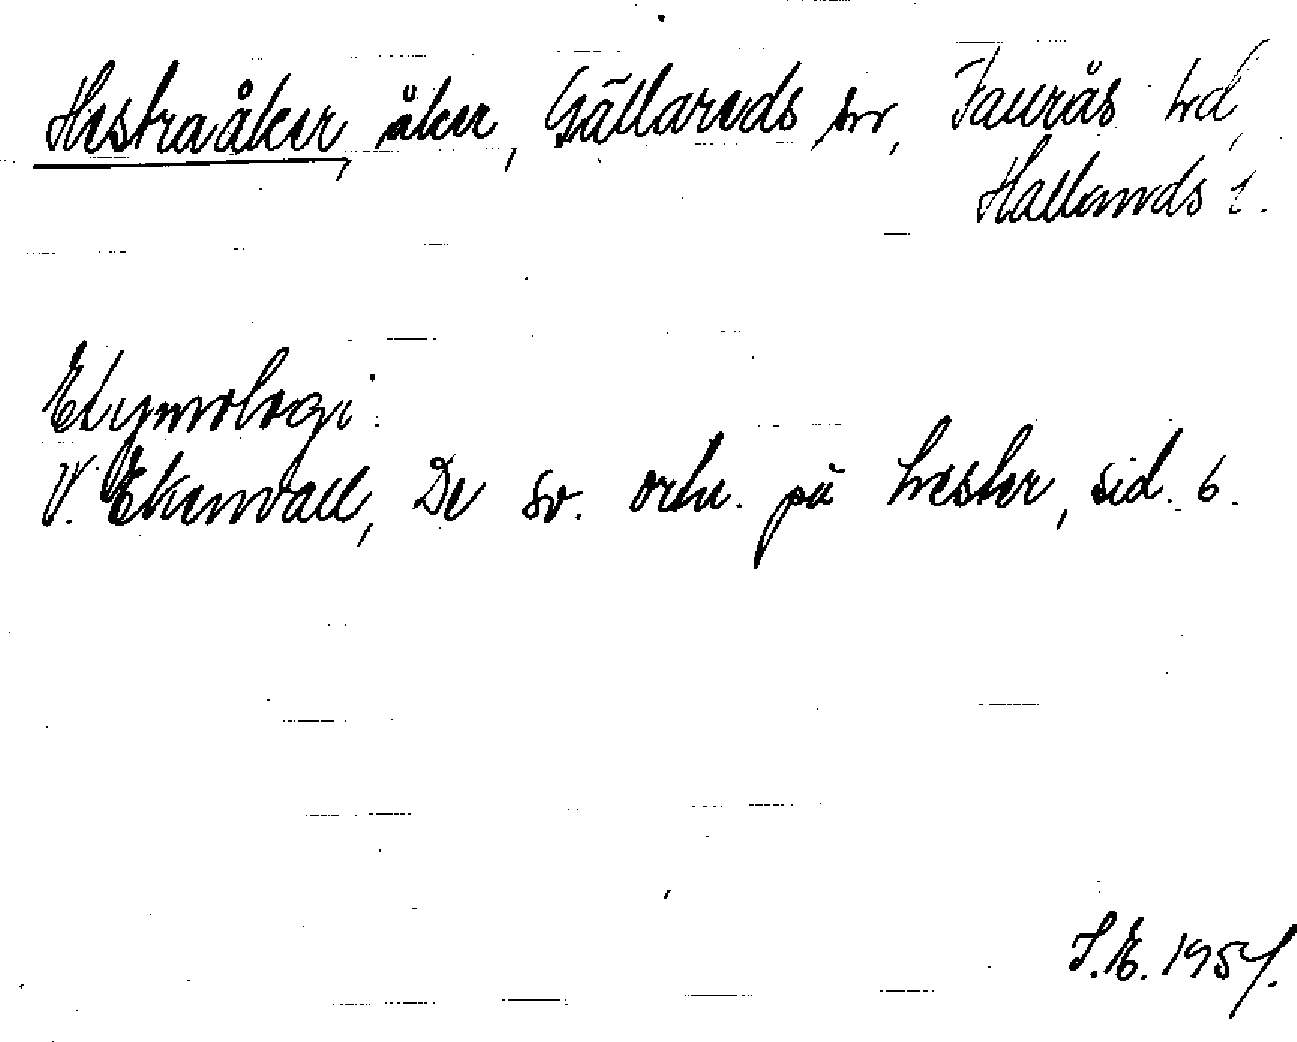 Hestraåker, åker, Gällareds sn, Faurås hd,
Hallands l.
Etymologi:
V. Ekenvall, De sv. ortn. på hester, sid. 6.
S.E. 1957.